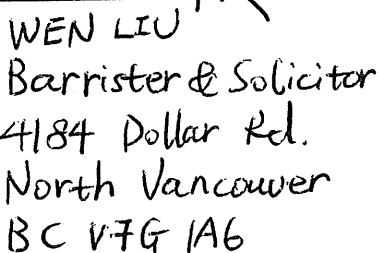 WEN LIU
Barrister & Solicitor
4184 Dollar Rd.
North Vancouver
BC V7G 1A6